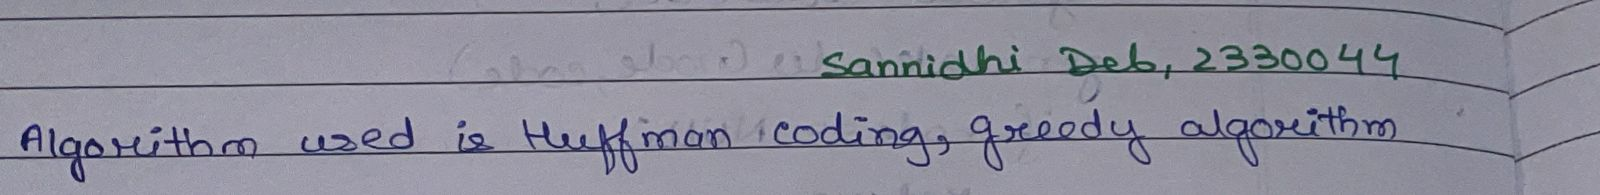 Sannidhi Deb, 2330044
Algorithm used is Huffman coding, greedy algorithm